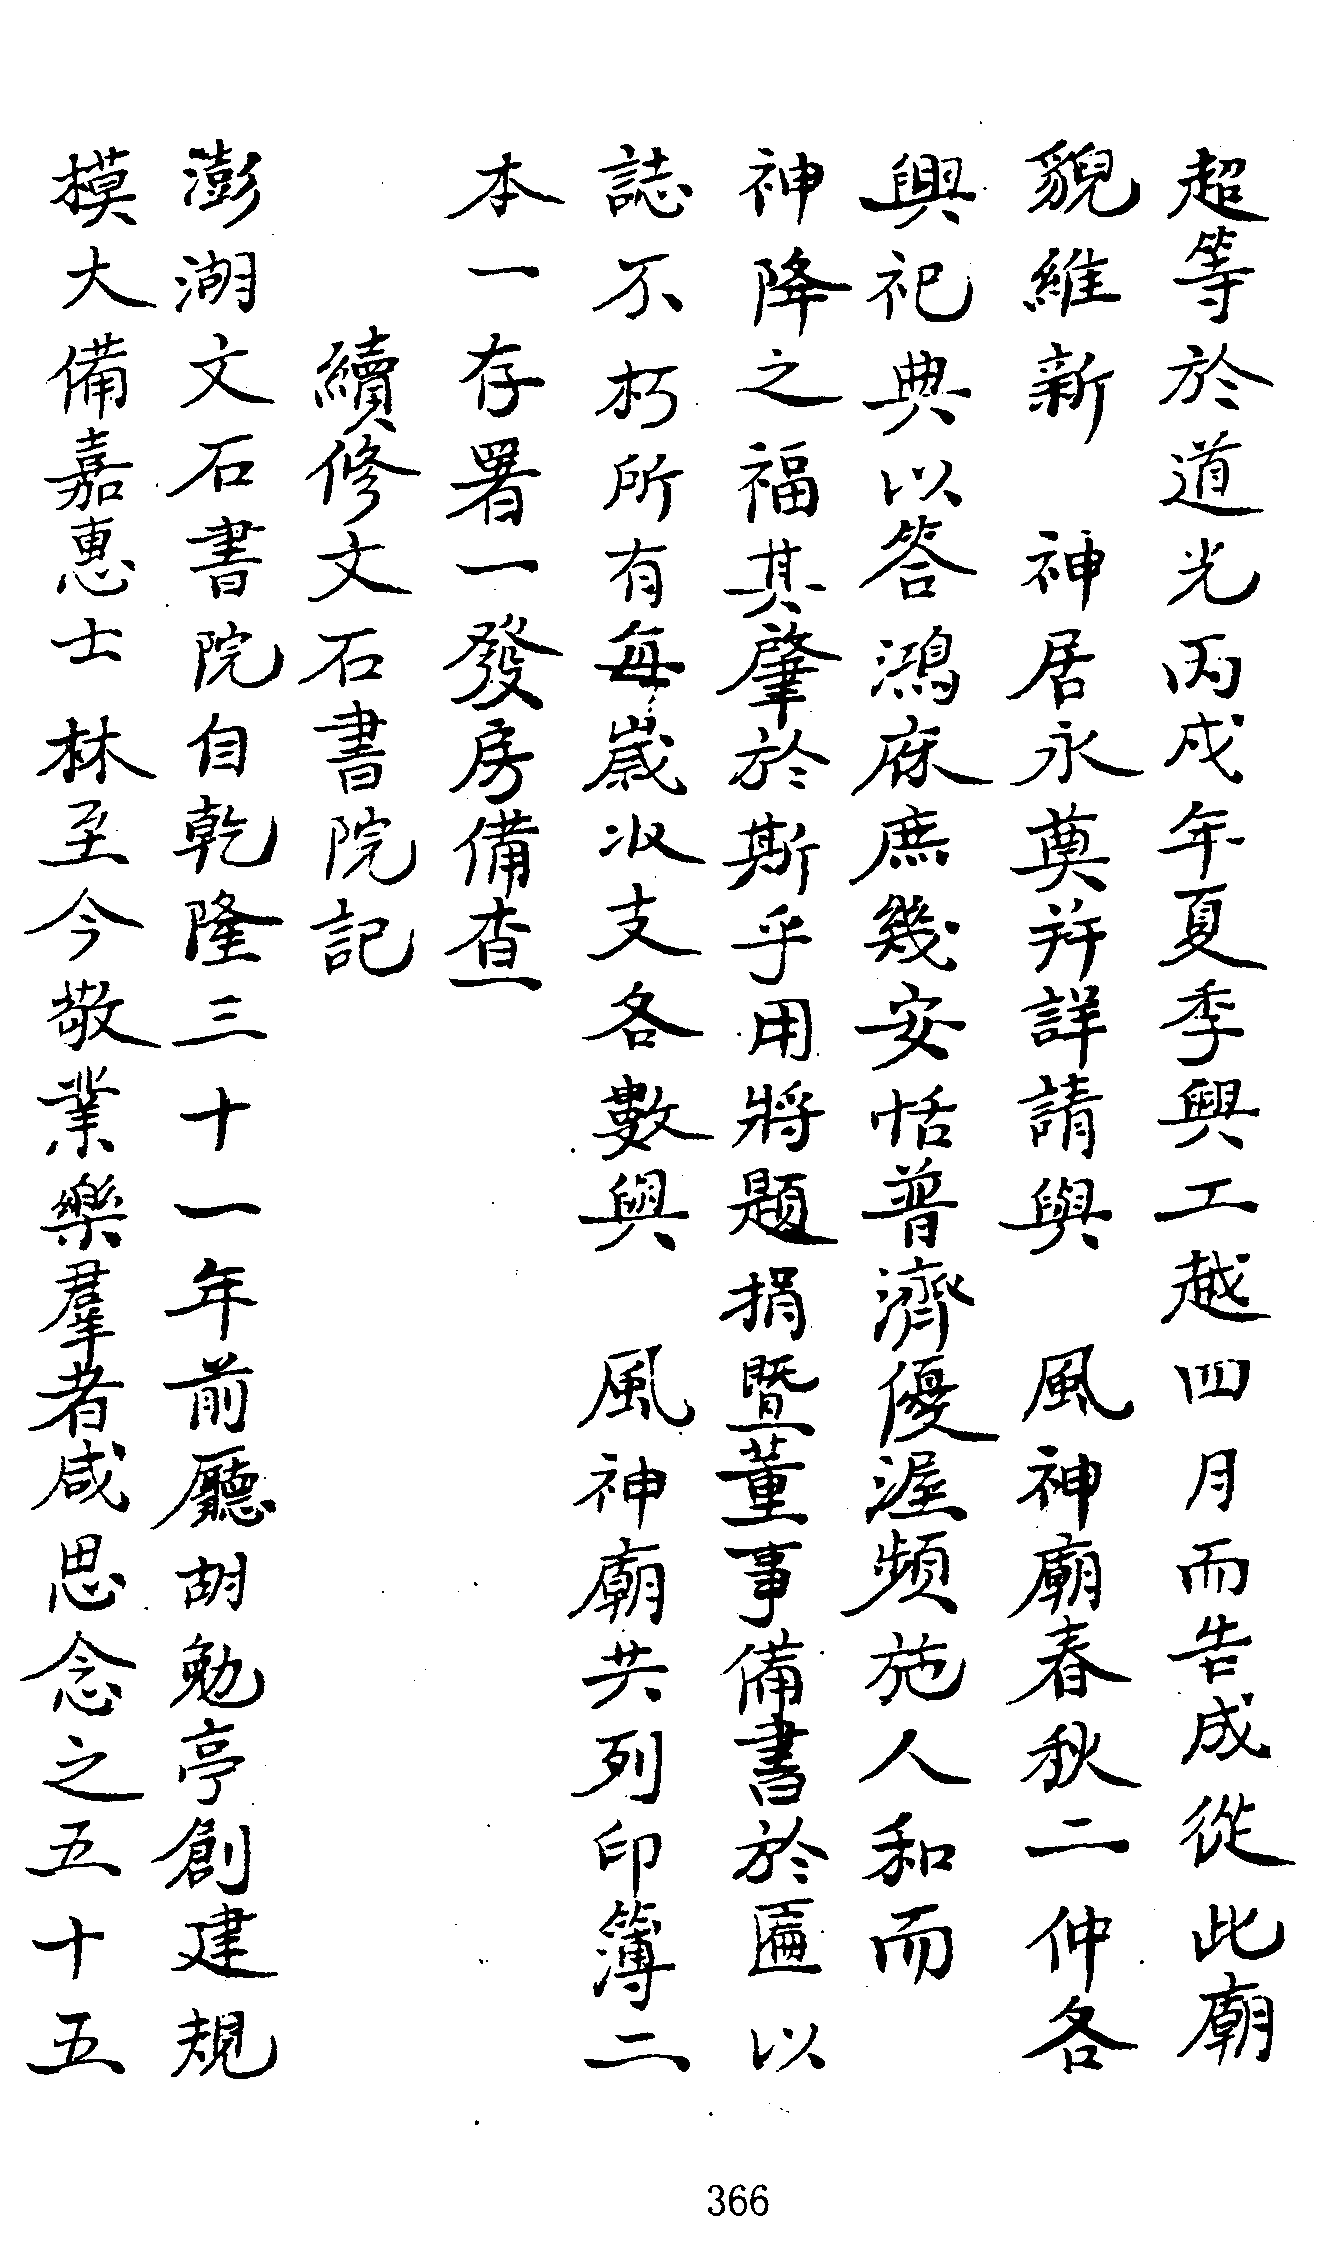 超等於道光丙戌年夏季興工越四月而告成從此廟
貌維新　神居永奠并詳請與　風神廟春秋二仲各
興祀典以答鴻庥庶幾安恬普濟優渥頻施人和而
神降之福其肇於斯乎用將題捐暨董事備書於匾以
誌不朽所有每歲收支各數與　風神廟共列印簿二
本一存署一發房備查
續修文石書院記
澎湖文石書院自乾隆三十一年前廳胡勉亭創建規
模大備嘉惠士林至今敬業樂羣者咸思念之五十五
366